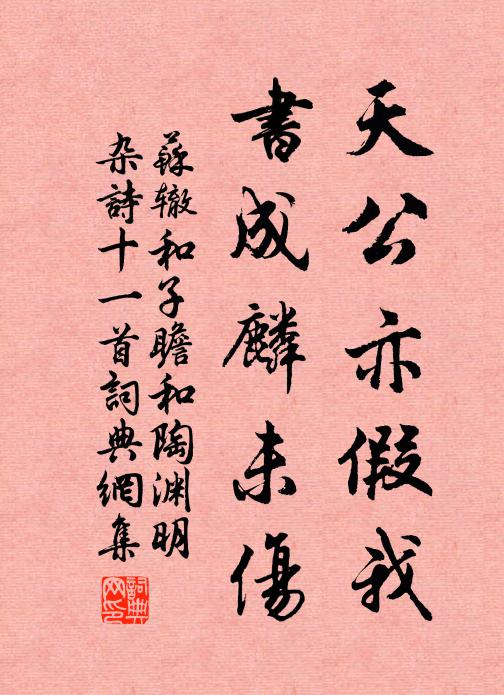 天公亦假我
書成麟未傷
蘇辙和子瞻和陶渊明
杂詩十一首詞典網集
詞典网印